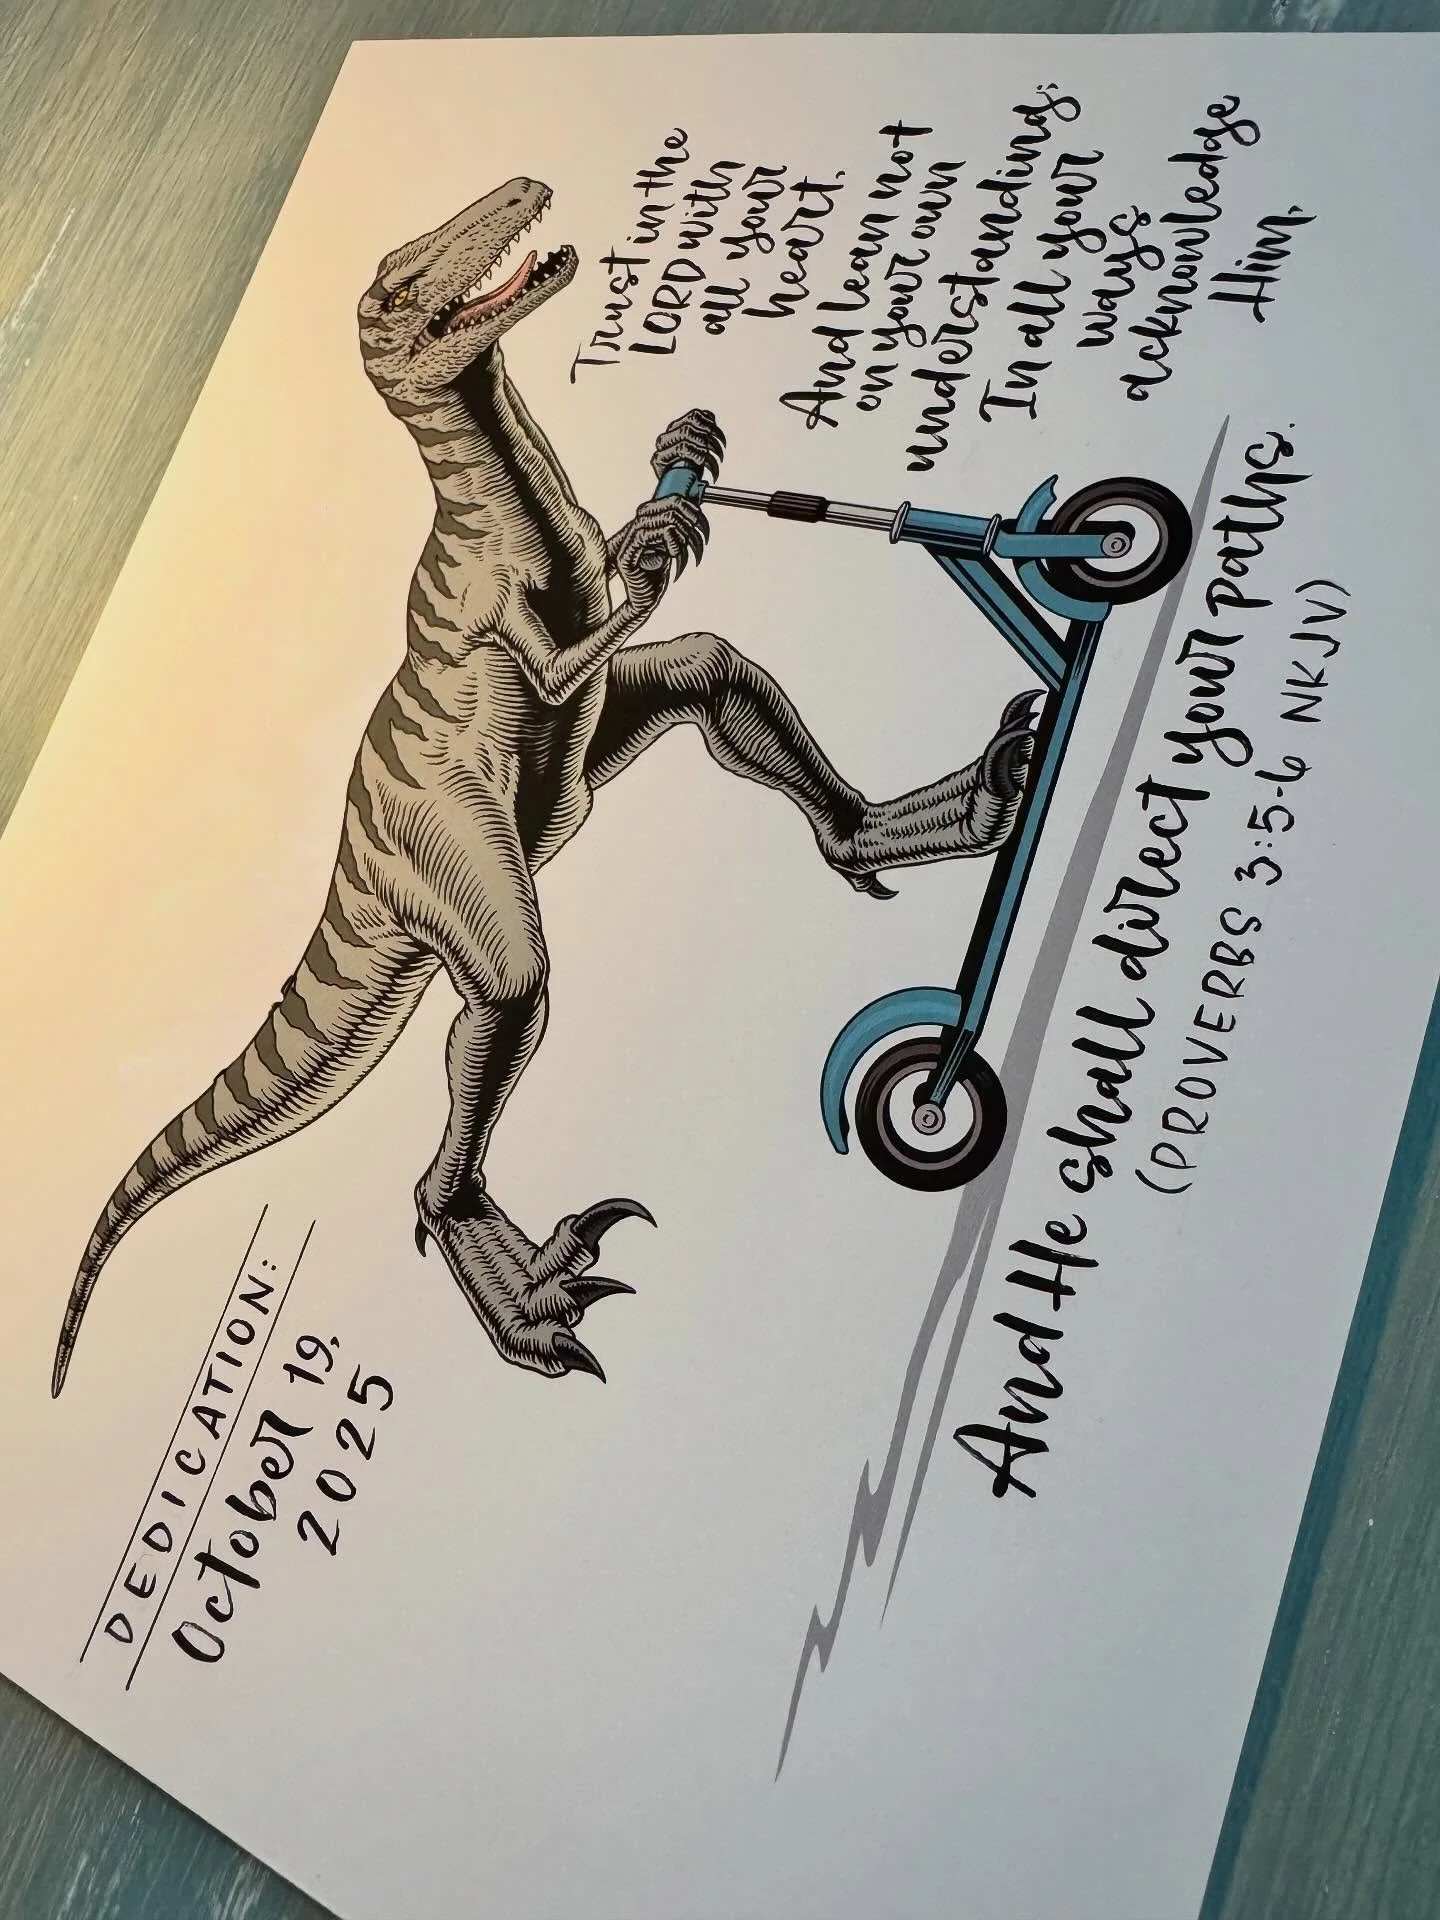 DEDICATION:
October 19,
2025
Trust in the
LORD with
all your
heart,
And lean not
on your own
understanding;
In all your
ways
acknowledge
Him,
And He shall direct your paths.
(PROVERBS 3:5-6 NKJV)